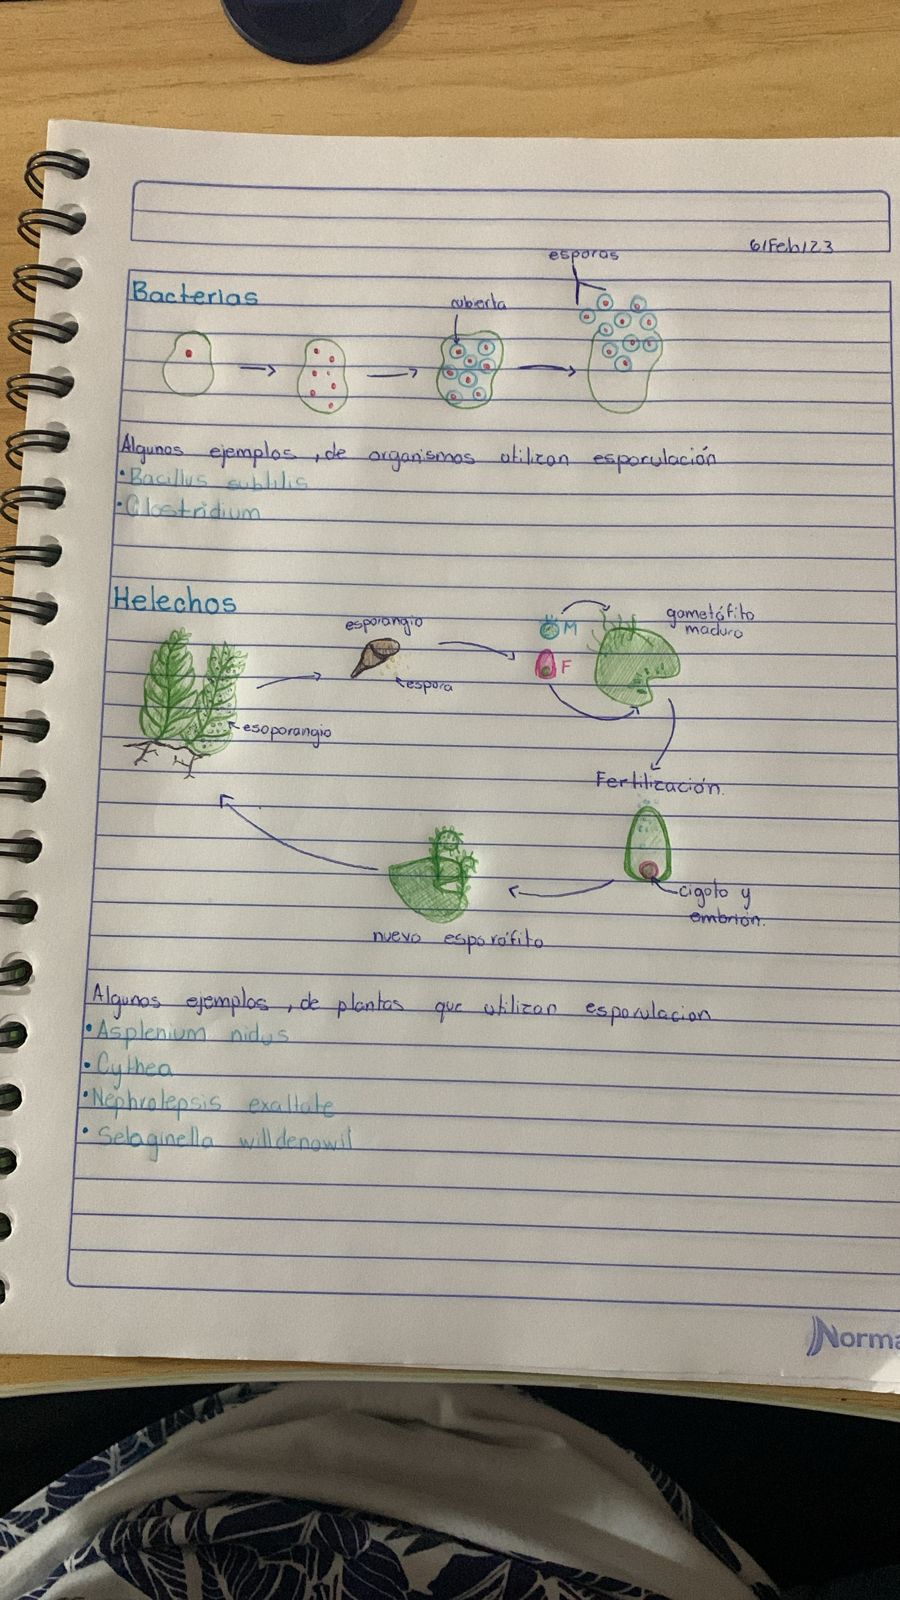 6/Feb/23
esporas
Bacterias
cubierta
Algunos ejemplos, de organismos utilizan esporulación
• Bacillus subtilis
• Clostridium
Helechos
esporangio
M
F
gametófito
maduro
espora
esoporangio
Fertilización.
cigoto y
embrión.
nuevo esporófito
Algunos ejemplos, de plantas que utilizan esporulacion
• Asplenium nidus
• Cythea
• Nephrolepsis exaltate
• Selaginella willdenowil
Norma